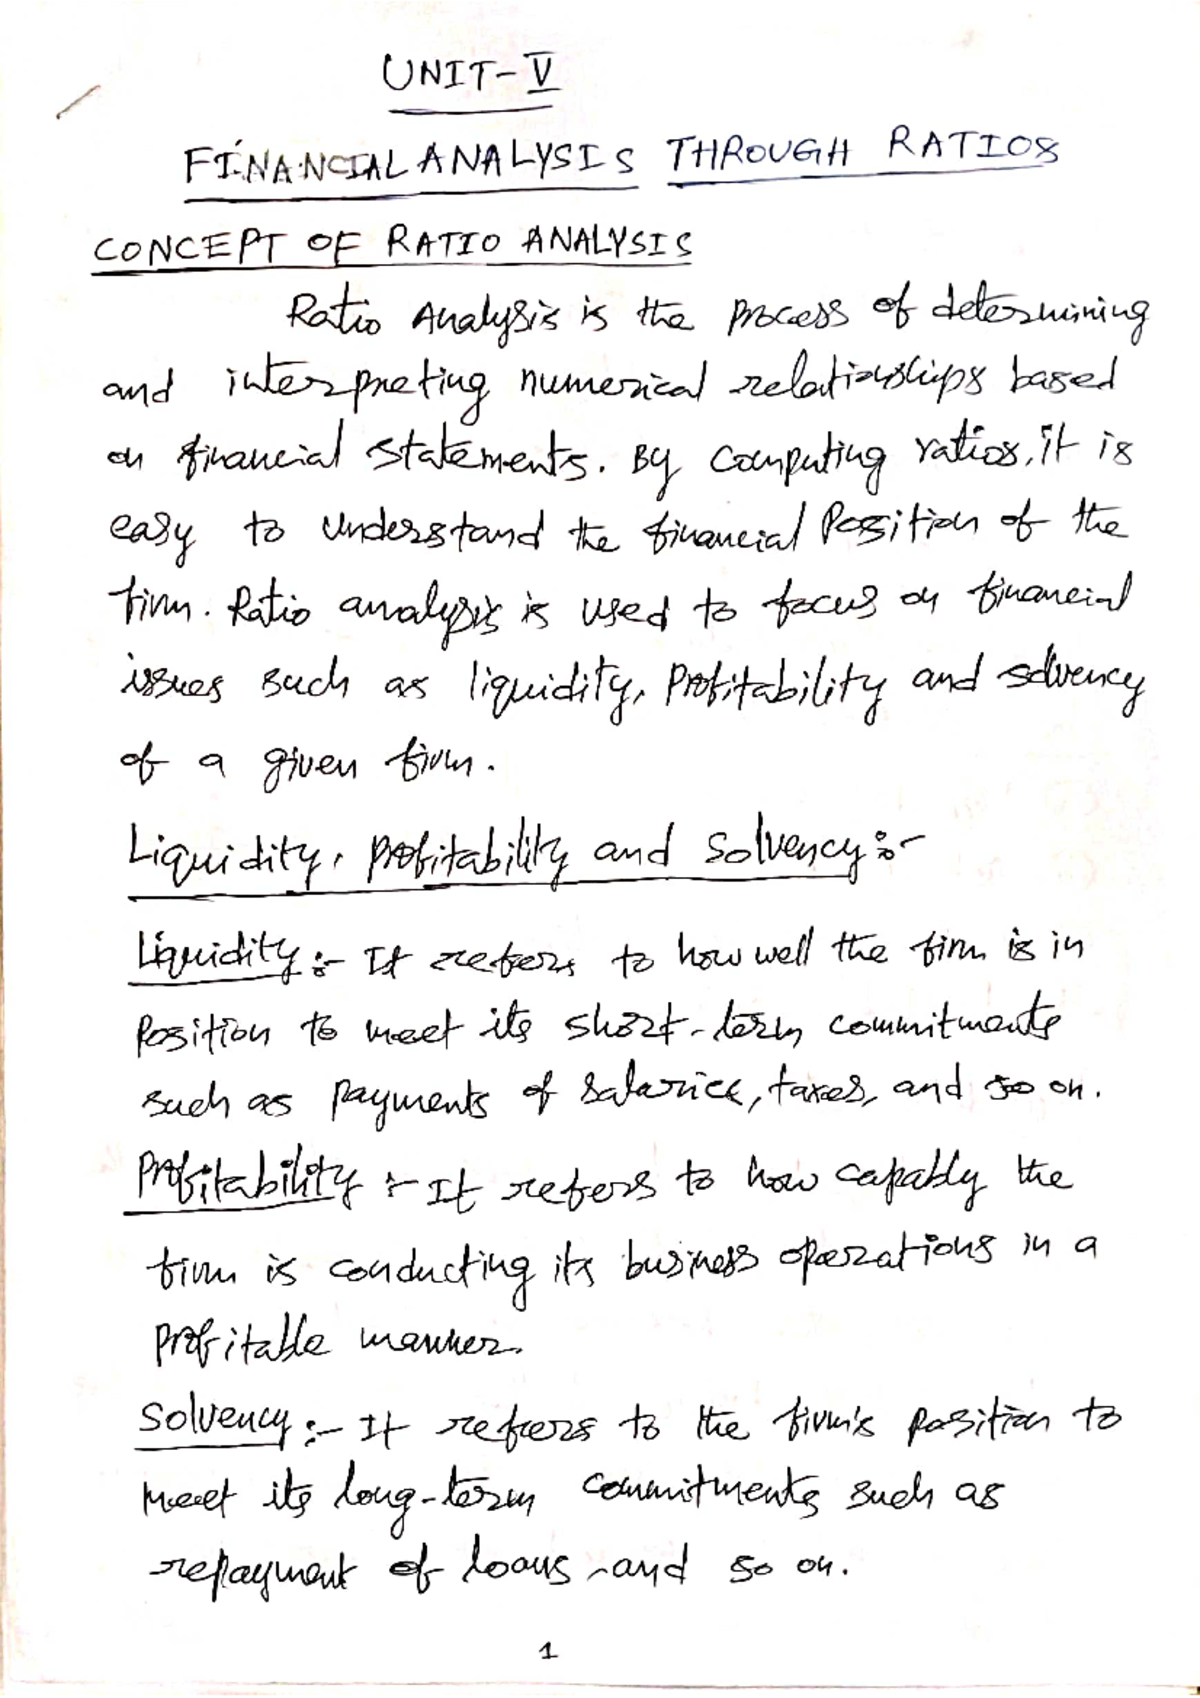 UNIT-V
FINANCIAL ANALYSIS THROUGH RATIOS
CONCEPT OF RATIO ANALYSIS
Ratio Analysis is the process of determining
and interpreting numerical relationships based
on financial statements. By computing ratios, it is
easy to understand the financial Position of the
firm. Ratio analysis is used to focus on financial
issues such as liquidity, Profitability and solvency
of a given firm.
Liquidity, profitability and solvency:-
Liquidity:- It refers to how well the firm is in
Position to meet its short-term commitments
such as payments of salaries, taxes, and so on.
Profitability :- It refers to how capably the
firm is conducting its business operations in a
profitable manner.
Solvency:- It refers to the firm's position to
meet its long-term commitments such as
repayment of loans and so on.
1